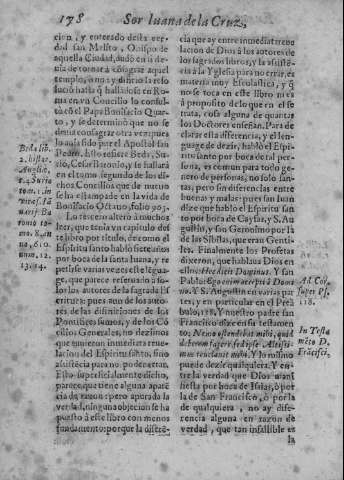 178 Sor Iuana de la Cruz,
cion, y enterado desta ver-
dad san Melito, Obispo de
aquella Ciudad, dudò en si de-
uia de tornar à consagrar aquel
templo, o no: y dio en la reso-
lucio hasta q̃ hallado se en Ro-
ma en vn Concilio lo consul-
tò cõ el Papa Bonifacio Quar-
to, y se determinò que no se
deuia consagrar otra vez: pues
lo auia sido por el Apostol san
Pedro. Esto refiere Beda, Su-
rio, Cesar Baronio, y se hallarà
en el tomo segundo de los di-
chos Concilios que de nueuo
se hã estampado en la vida de
Bonifacio Octauo, folio 203.
Lo tercero altero à muchos
leer, que tenia vn capitulo del
te libro por titulo, de como el
Espiritu santo hablò siete años
por boca de la santa Iuana, y re
petirse varias vezes este lengua-
ge, que parece referuado a so-
los los autores de la sagrada Es-
critura: pues aun de los auto-
res de las difiniciones de los
Pontifices sumos, y de los Cõ
cilios Generales, no dezimos
que tuuieron inmediata reue-
lacion del Espiritu santo, sino
assistẽcia para no poder errar.
Esto superficialmente dicho,
parece que tiene alguna apariẽ
cia de razon: pero apurada la
verdad, ninguna objecion se ha
puesto à este libro con menos
fundamento: porque la diferẽ-
cia que ay entre inmediata reue
lacion de Dios à los autores de
los sagrados libros, y la assistẽ-
cia à la Yglesia para no errar, es
materia muy Escolastica, y q̃
no se toca en este libro ni es
à proposito de lo que en el se
trata, cosa alguna de quantas
los Doctores enseñan. Para de
clarar esta diferencia, y el len-
guage de dezir, hablò el Espiri-
tu santo por boca de tal per-
sona, es comun para todo ge-
nero de personas, no solo san-
tas, pero sin diferencias entre
buenas y malas: pues san Iuan
dize que hablò el Espiritu san-
to por boca de Cayfas, y S. Au
gustin, y san Geronimo por la
de las Sibilas, que eran Genti-
les. Finalmente los Profetas
dixeron, que hablaua Dios en
ellos: Hæc dicit Dominus. Y san
Pablo: Ego enim accepi à Domi
no. Y S. Augustin en varias par
tes, y en particular en el Preã
bulo, 118. Y nuestro padre san
Francisco dize en su testamen-
to: Nemo ostendebat mihi, quid
deberem facere, sed ipse Altissi-
mus reuelauit mihi. Y lo mismo
puede dezir qualquiera. Y en-
tre la verdad que Dios mani
fiesta por boca de Isaias, ò por
la de san Francisco, ò por la
de qualquiera, no ay dife-
rencia alguna en razon de
verdad, que tan infalible es
la
Beda lib.
2. histor.
Anglic.
c. 3. Surio
tom. 1. in
Ad Cor.
super Ps.
118.
In Testa
mẽto D.
Frãcisci.